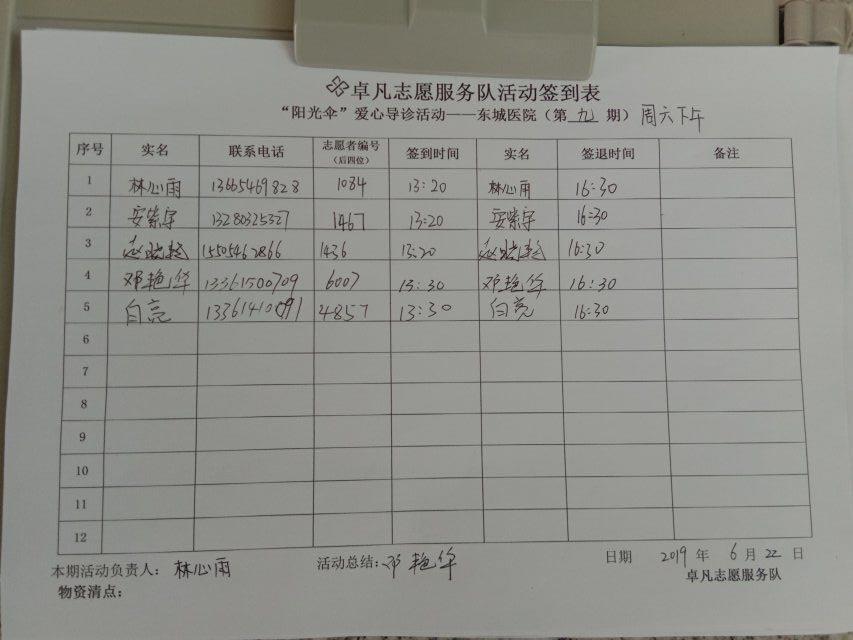 卓凡志愿服务队活动签到表
“阳光伞”爱心导诊活动——东城医院（第 九 期）周六下午
序号 实名 联系电话 志愿者编号（后四位） 签到时间 实名 签退时间 备注
1 林心雨 13665469828 1034 13:20 林心雨 16:30
2 安紫宇 13280325327 1467 13:20 安紫宇 16:30
3 赵 15505462866 1436 13:20 赵 16:30
4 邓艳华 13361500709 6007 13:30 邓艳华 16:30
5 白亮 13361410091 4857 13:30 白亮 16:30
6
7
8
9
10
11
12
本期活动负责人：林心雨 活动总结:邓艳华 日期 2019 年 6 月 22 日
物资清点： 卓凡志愿服务队